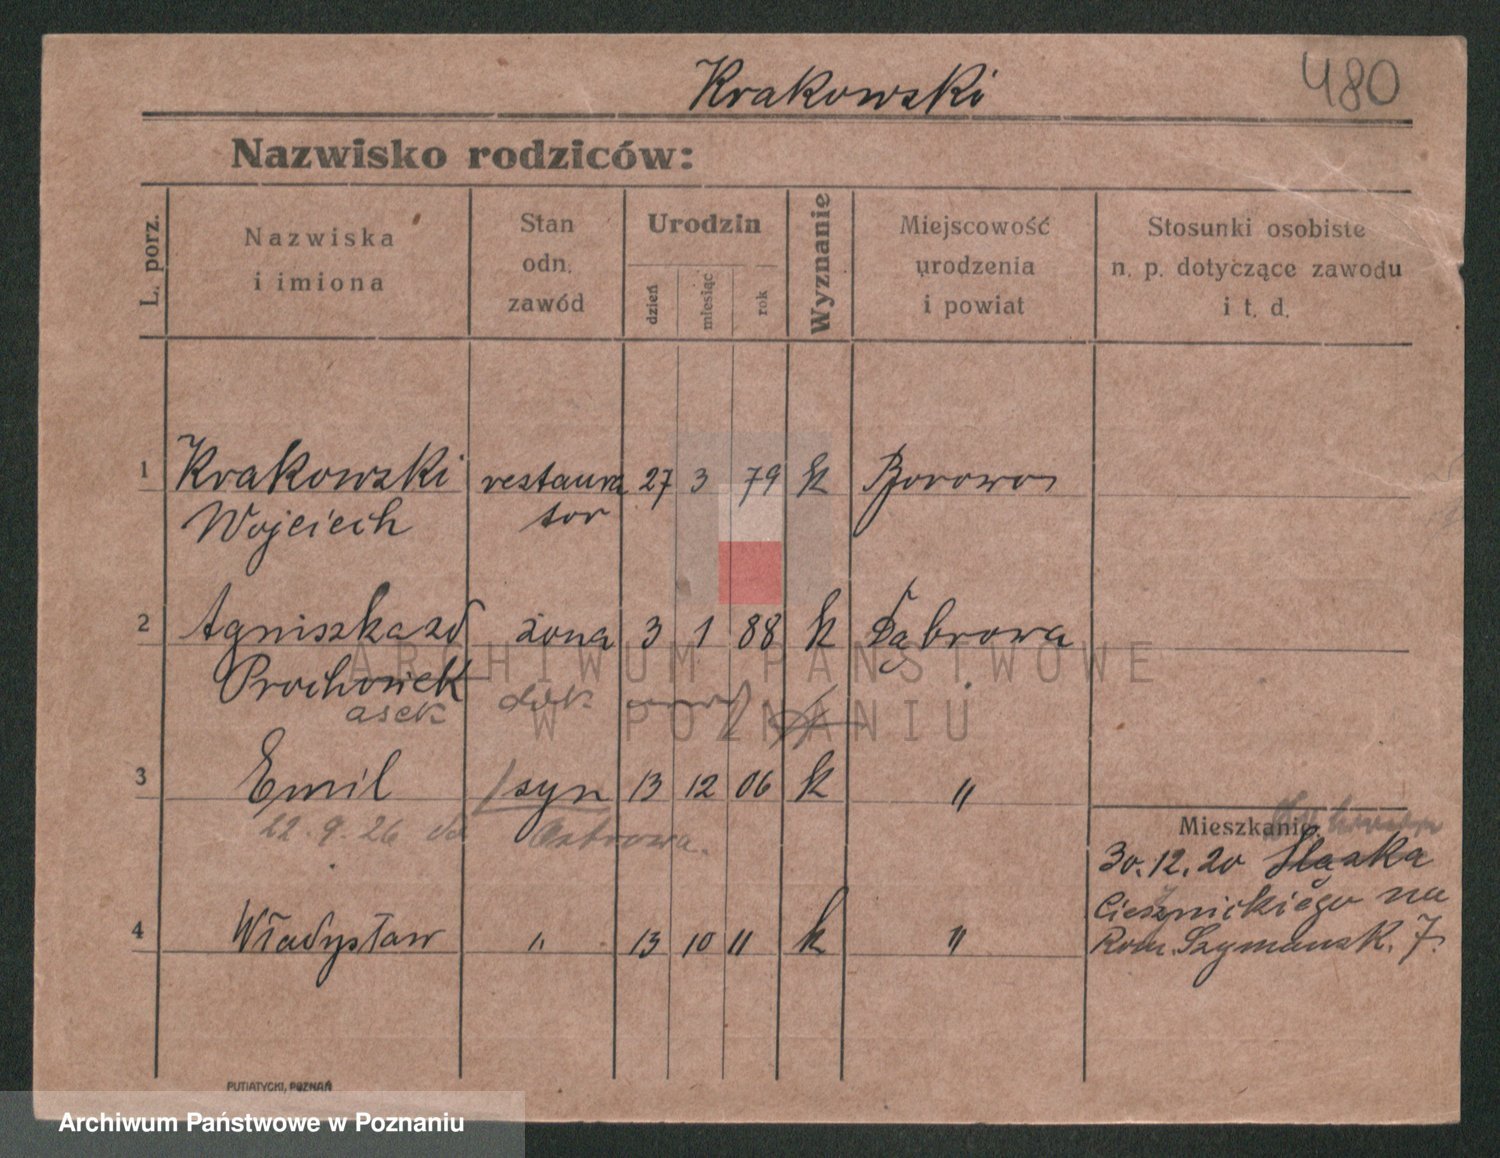 Krakowski
480
Nazwisko rodziców:
L. porz.
Nazwiska
i imiona
Stan
odn.
zawód
Urodzin
dzień
miesiąc
rok
Wyznanie
Miejscowość
urodzenia
i powiat
Stosunki osobiste
n. p. dotyczące zawodu
i t. d.
1 Krakowski restaura 27 3 79 k Borowo
Wojciech tor
2 Agnieszka zd żona 3 1 88 k Dąbrowa
asek
3 Emil syn 13 12 06 k "
22.9.26 do Ostrowa.
Mieszkanie:
30.12.20
na
4 Władysław " 13 10 11 k "
Rom. Szymansk. 7.
PUTIATYCKI, POZNAŃ
ARCHIWUM PAŃSTWOWE
W POZNANIU
Archiwum Państwowe w Poznaniu